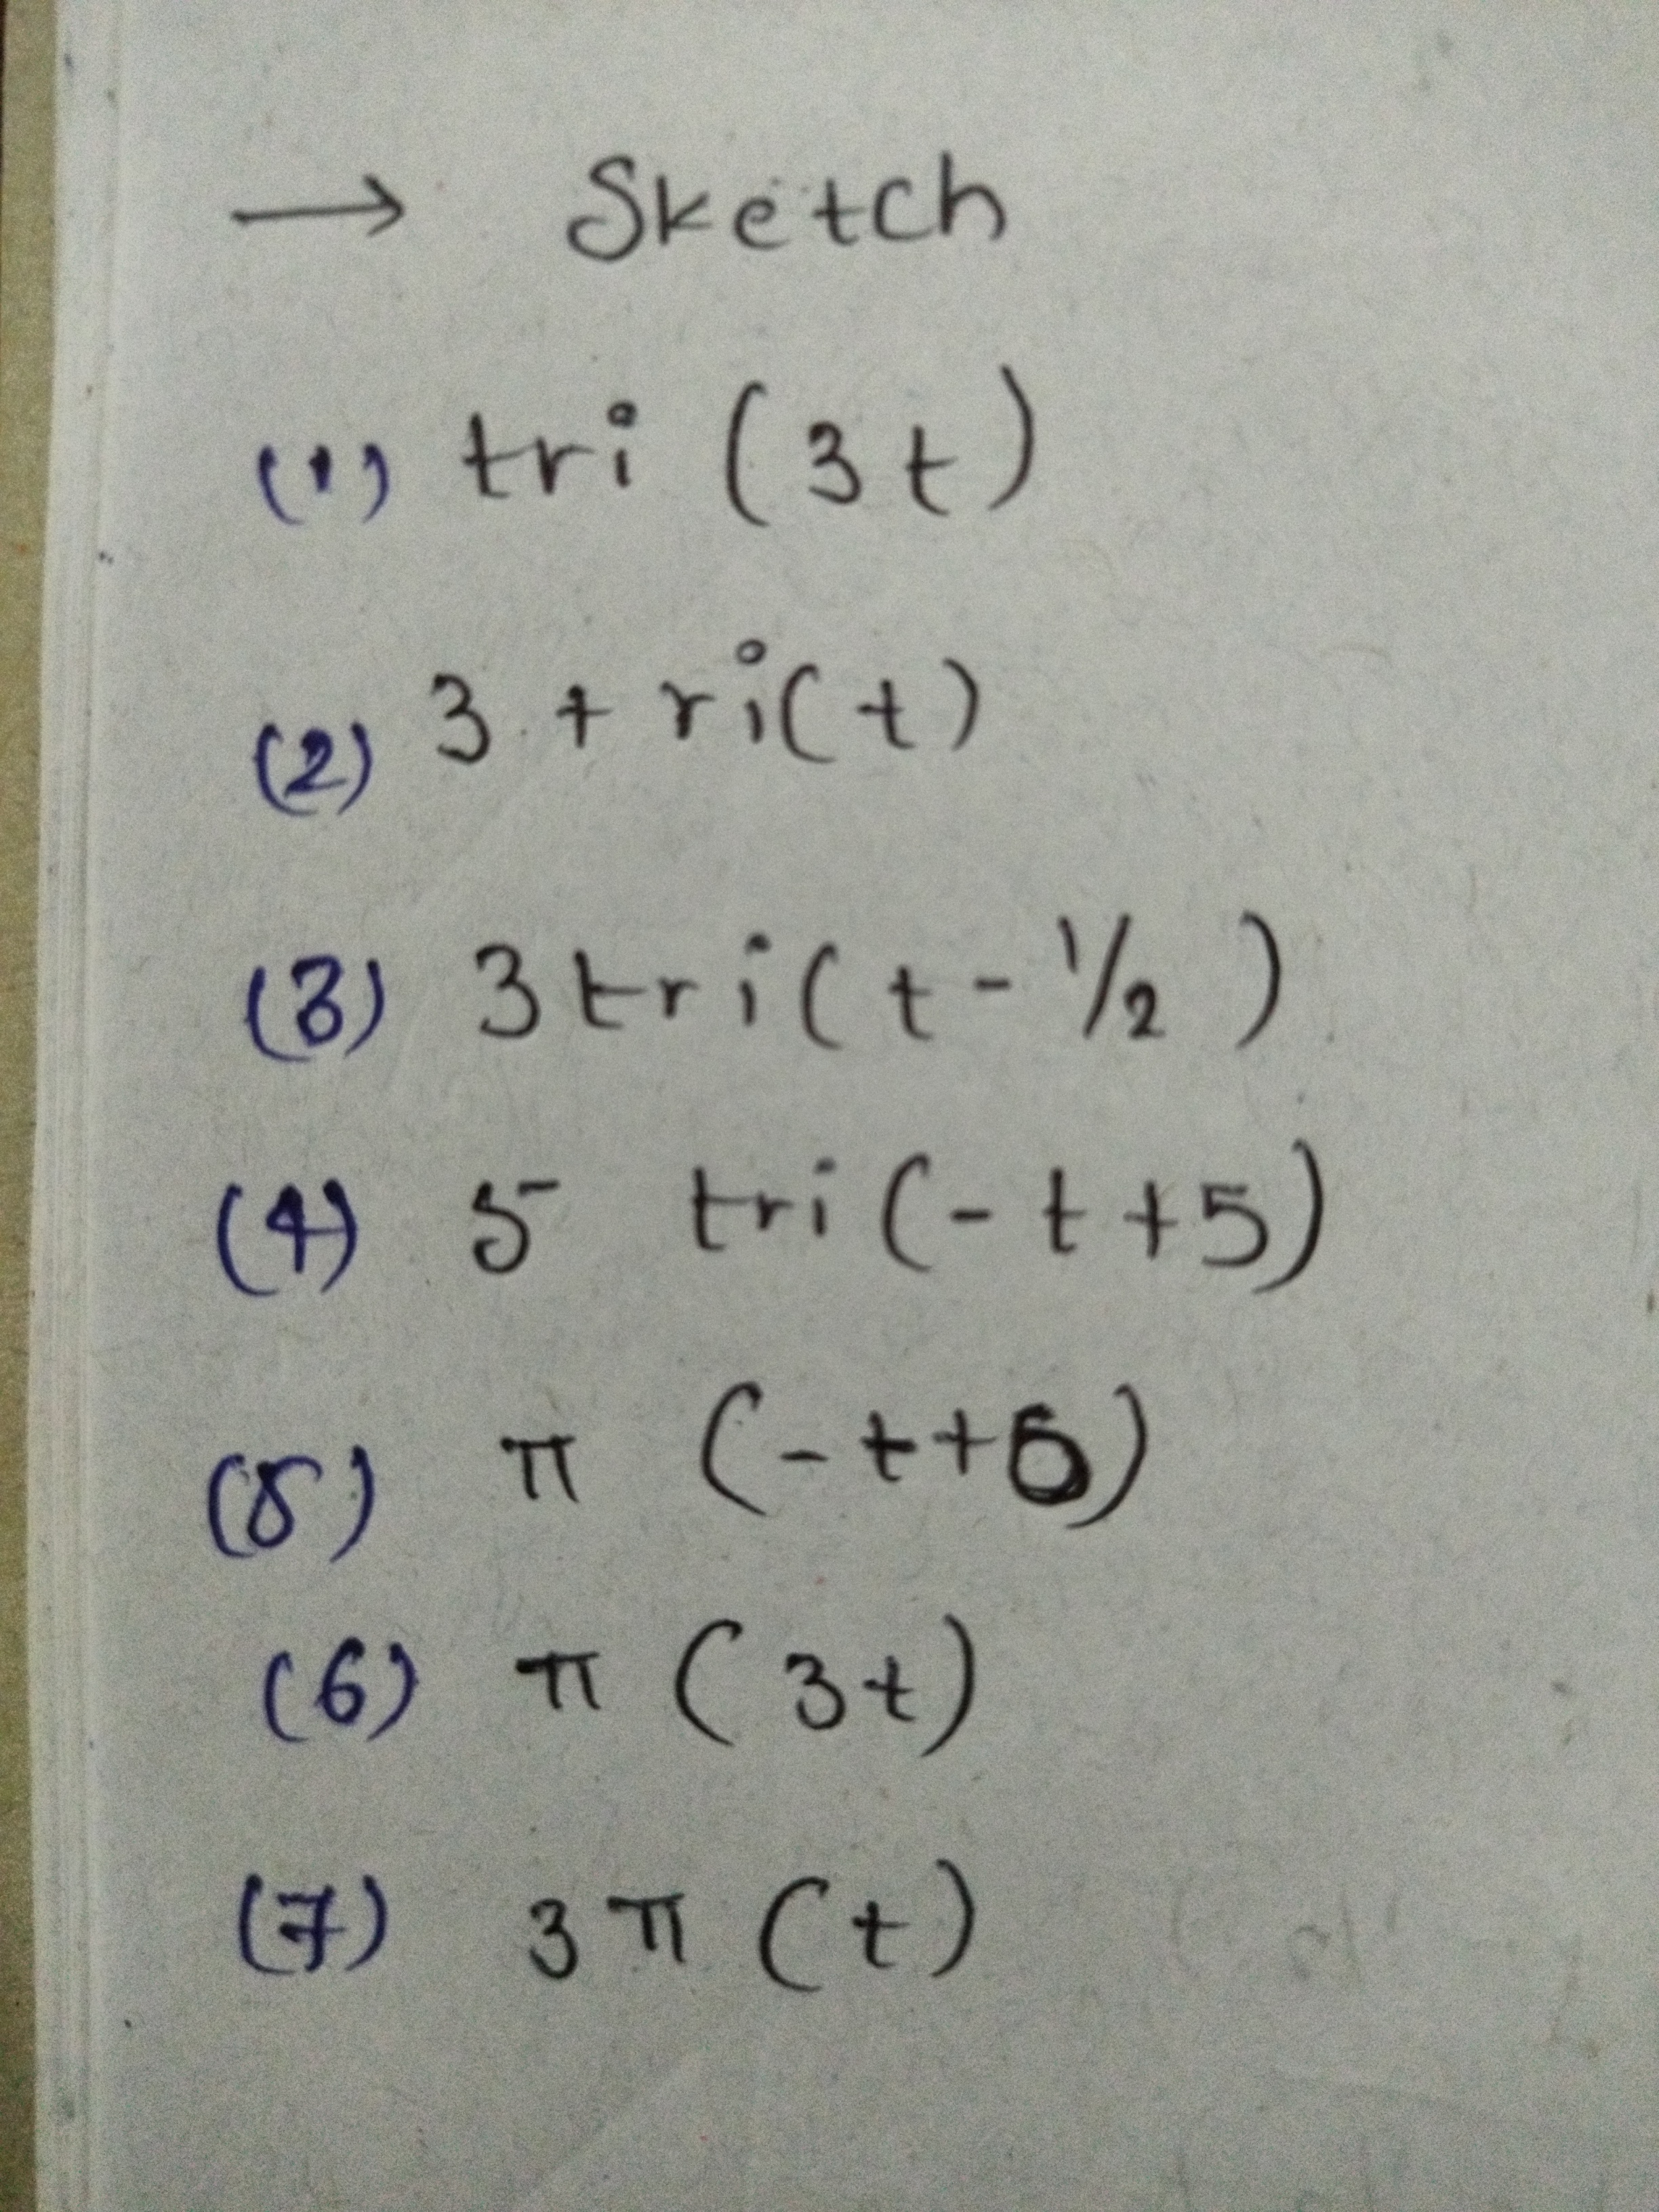 → Sketch
(1) tri (3t)
(2) 3 tri(t)
(3) 3tri(t-1/2)
(4) 5 tri(-t+5)
(5) π (-t+5)
(6) π (3t)
(7) 3π (t)